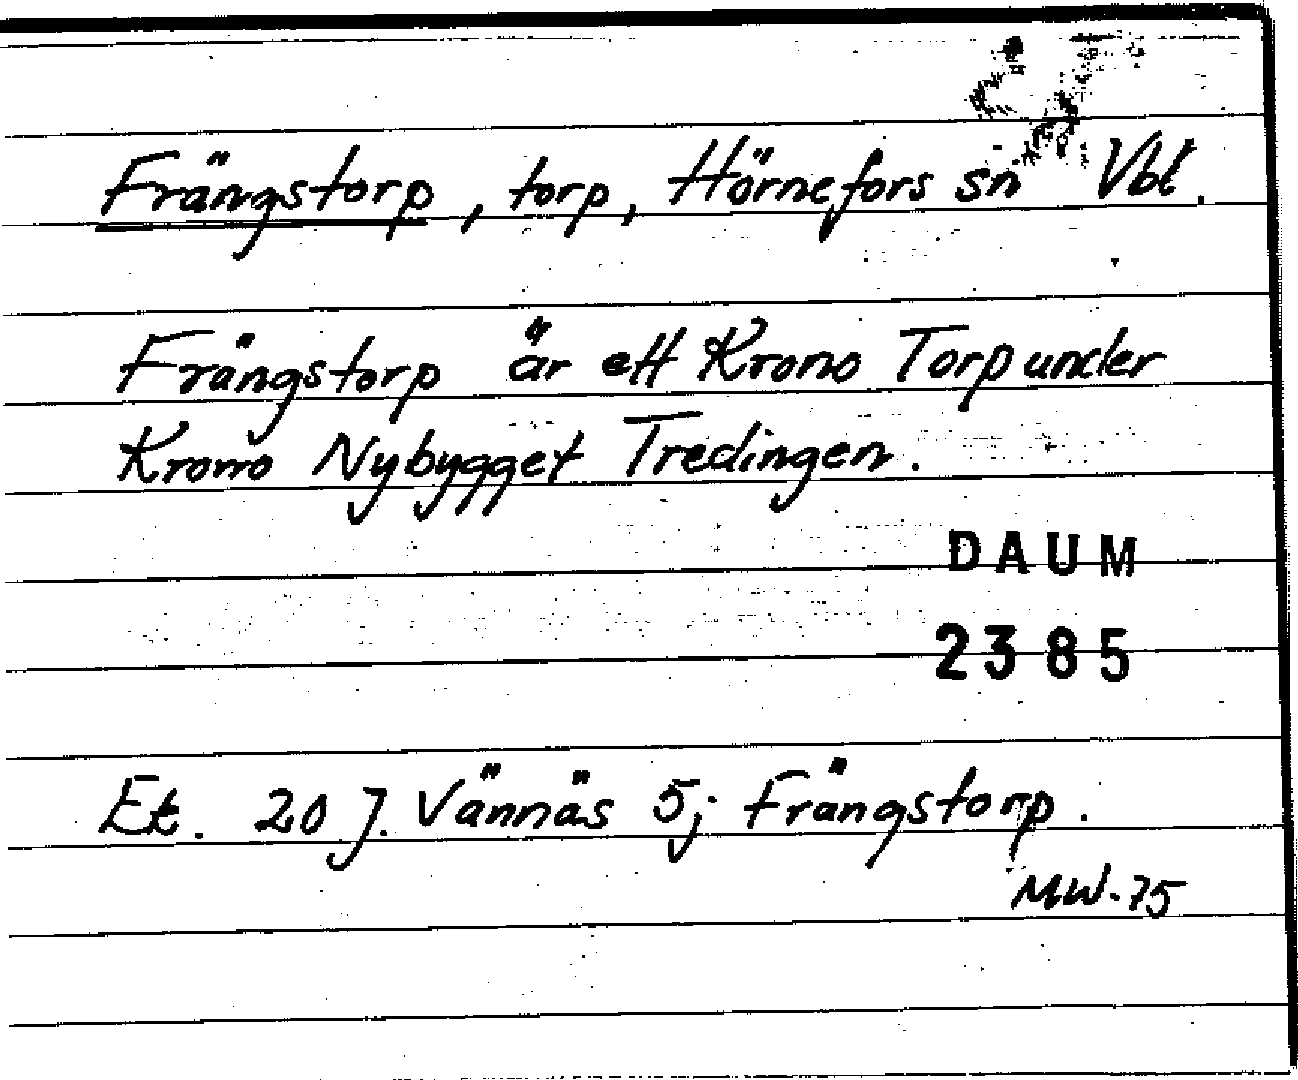 Frängstorp, torp, Hörnefors sn Vbt.
Frängstorp är ett Krono Torp under
Krono Nybygget Tredingen.
DAUM
2385
Et. 20 J. Vännäs 5; Frängstorp.
MW-75